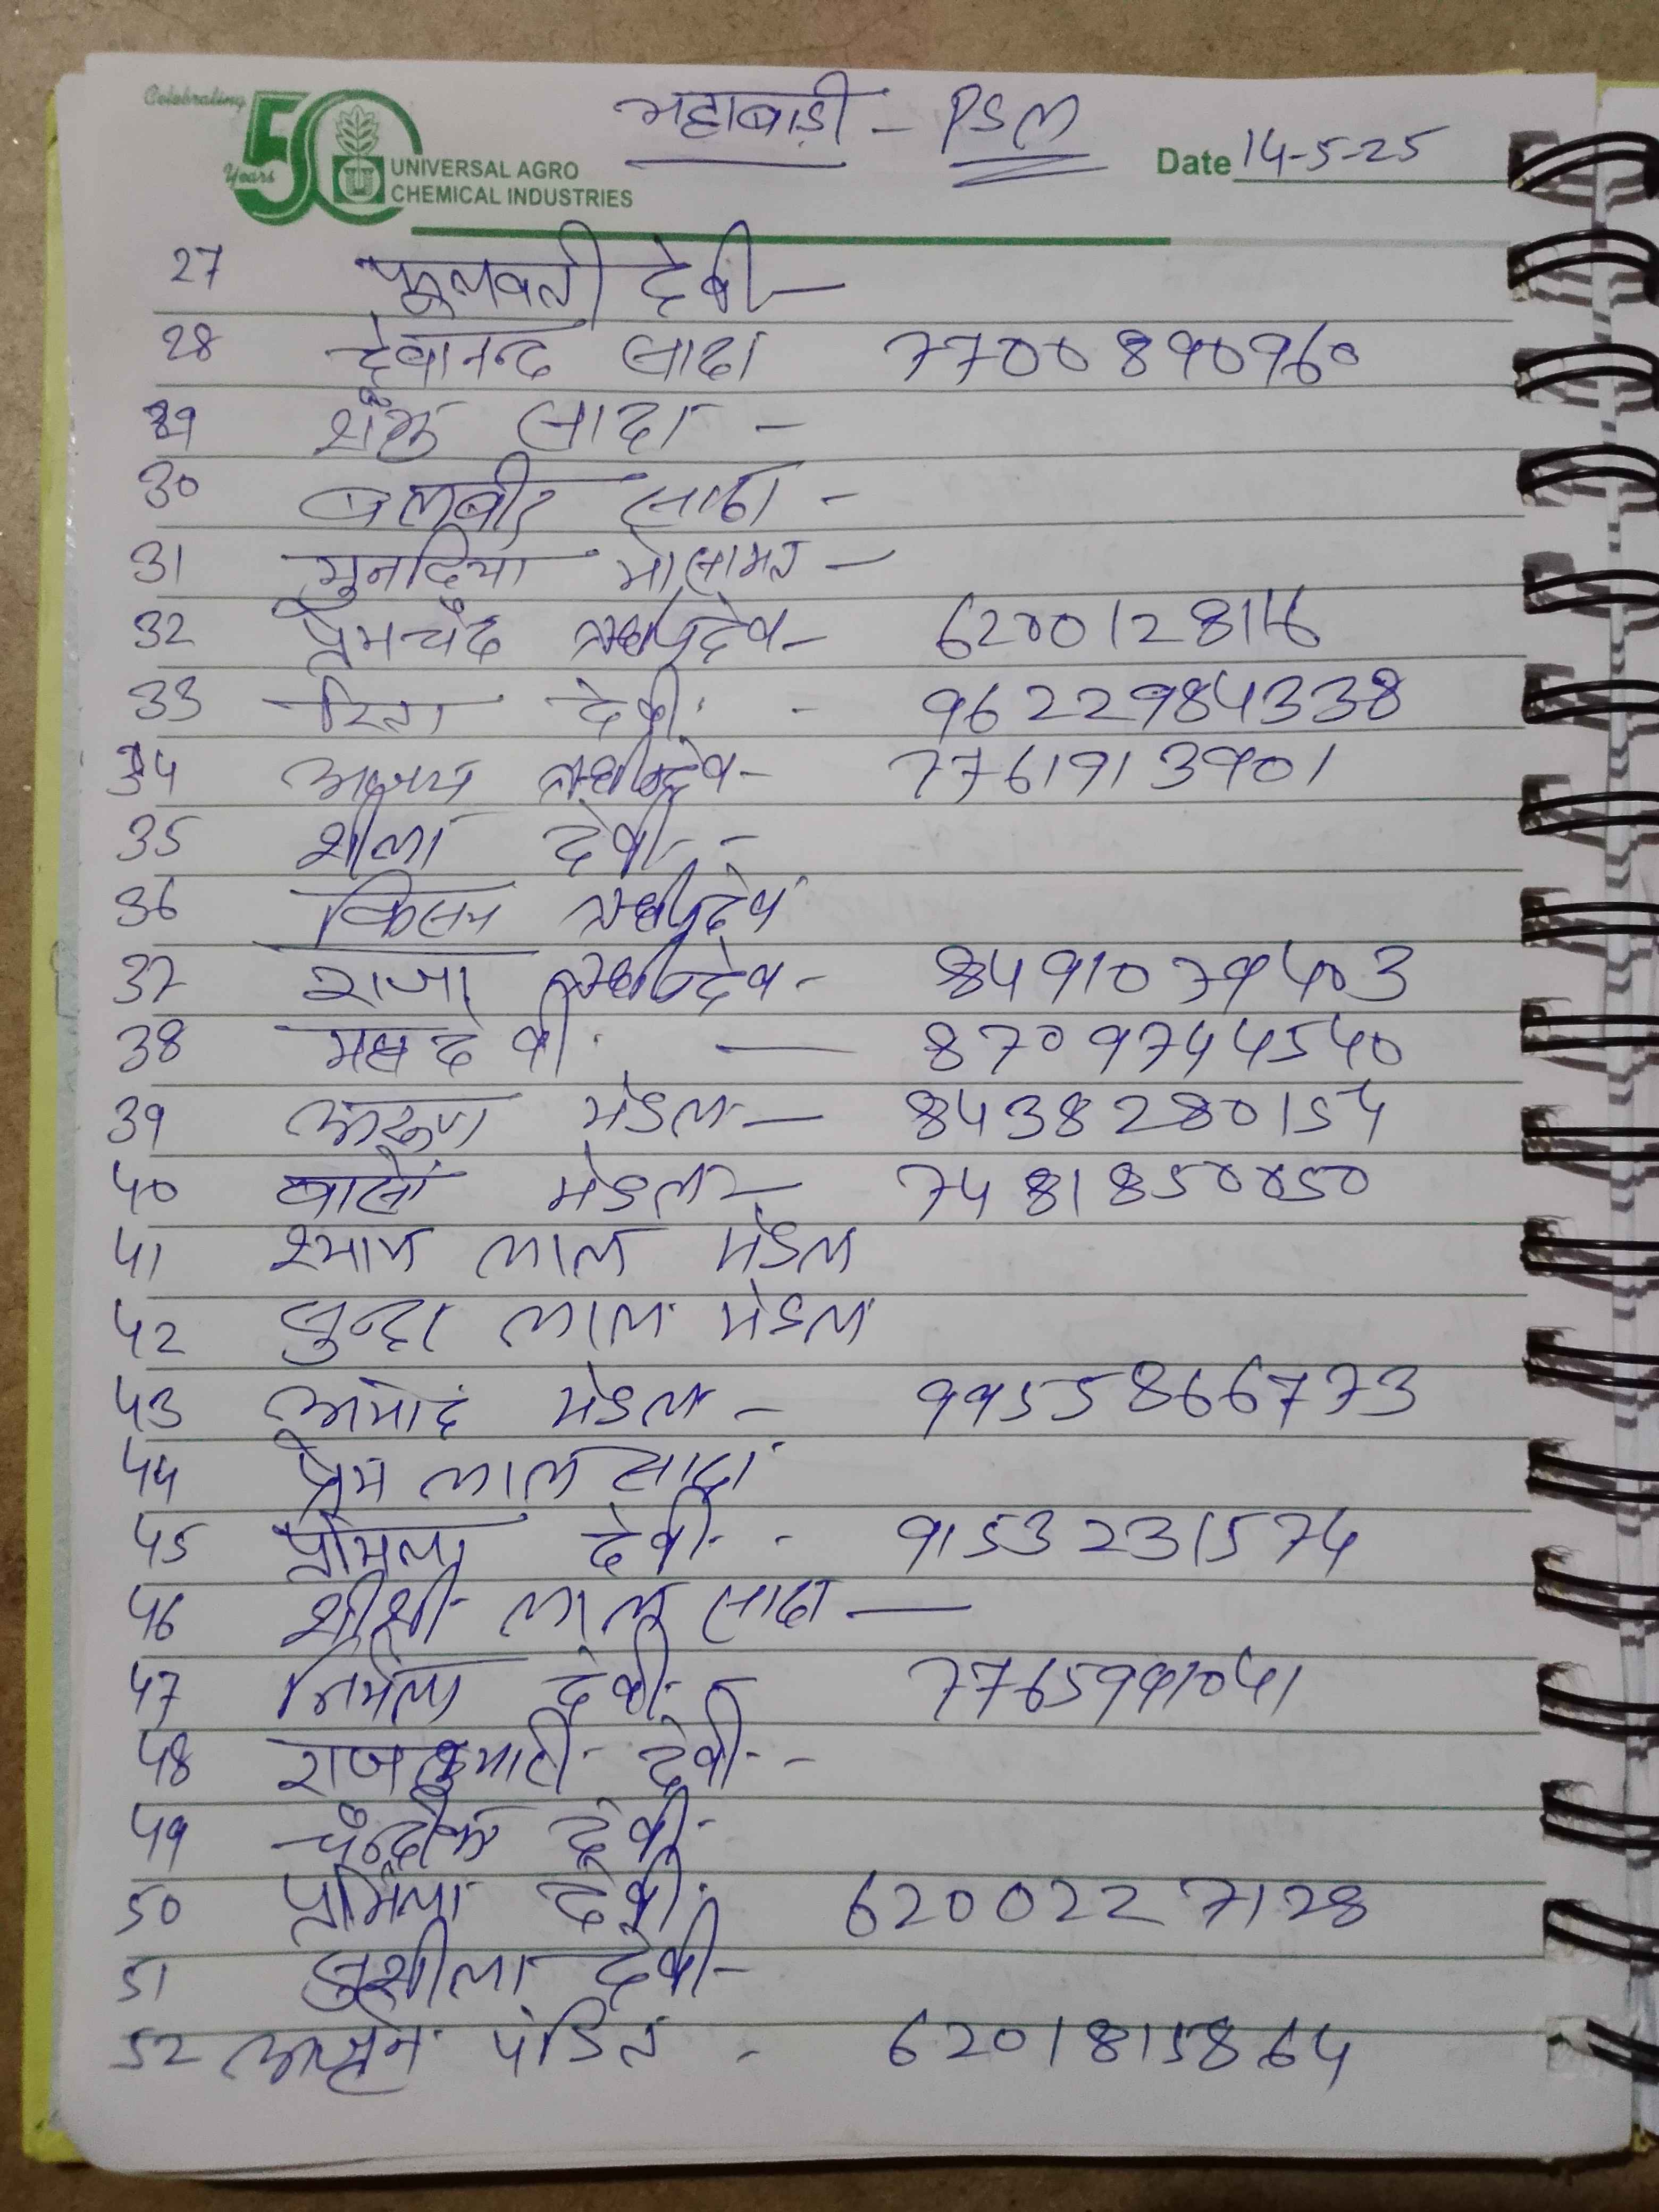 Celebrating
50
Years
UNIVERSAL AGRO
CHEMICAL INDUSTRIES
महाबाड़ी - PSM
Date 14-5-25
27 फूलवती देवी -
28 देवानन्द सादा 7700890960
29 शंभू सादा -
30 बलबीर सादा -
31 मुनदिया मोसामत -
32 प्रेमचंद 6200128116
33 रिता देवी - 9622984338
34 अजय 7761913901
35 शीला देवी -
36
37 राजा 8491079403
38 8709744540
39 अरूण मंडल - 8438280154
40 वासो मंडल - 7481850050
41 श्याम लाल मंडल
42 सुन्दर लाल मंडल
43 आमोद मंडल - 9955866773
44 प्रेम लाल सादा
45 प्रमिला देवी - 9153231574
46 लाल सादा -
47 निर्मला देवी - 7765941041
48 राजकुमारी देवी -
49 देवी
50 प्रमिला देवी 6200227128
51 सुशीला देवी -
52 पंडित - 6201815864